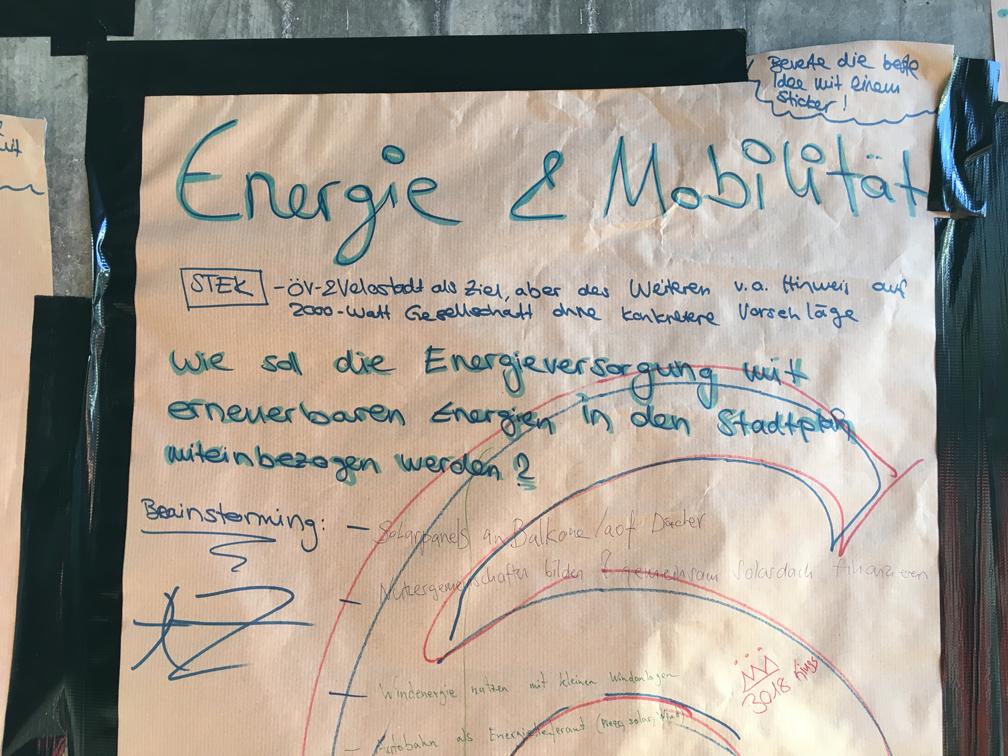 Bewerte die beste
Idee mit einem
Sticker!
Energie & Mobilität
STEK - ÖV- & Velostadt als Ziel, aber des Weiteren v.a. Hinweis auf
2000-Watt Gesellschaft ohne konkretere Vorschläge
Wie sol die Energieversorgung mit
erneuerbaren Energien in den Stadtplan
miteinbezogen werden?
Brainstorming: - Solarpanels an Balkone/auf Dächer
- Nutzergemeinschaften bilden & gemeinsam Solardach finanzieren
- Windenergie nutzen mit kleinen Windanlagen
3018 Kings
- Autobahn als Energielieferant (Piezo, solar, Wind)